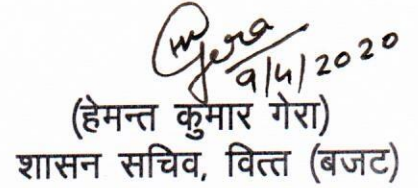 Gera
9/4/2020
(हेमन्त कुमार गेरा)
शासन सचिव, वित्त (बजट)